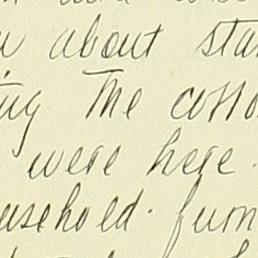 about sta
ing The cotto
were here.
usehold. furn